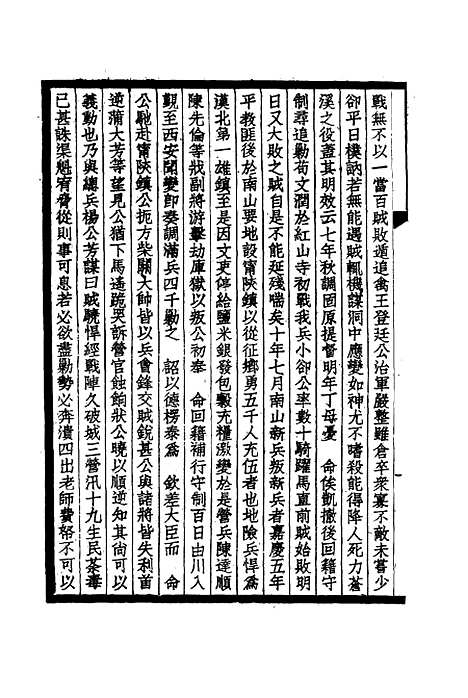 戰無不以一當百賊敗遁追禽王登廷公治軍嚴整雖倉卒衆寡不敵未嘗少
卻平日樸訥若無能遇賊輒機謀洞中應變如神尤不嗜殺能得降人死力蒼
溪之役蓋其明效云七年秋調固原提督明年丁母憂 命俟凱撤後回籍守
制尋追勦苟文潤於紅山寺初戰我兵小卻公率數十騎躍馬直前賊始敗明
日又大敗之賊自是不能延殘喘矣十年七月南山新兵叛新兵者嘉慶五年
平教匪後於南山要地設甯陝鎮以從征鄉勇五千人充伍者也地險兵悍爲
漢北第一雄鎮至是因文吏停給鹽米銀發包穀充糧激變於是營兵陳達順
陳先倫等戕副將游擊劫庫獄以叛公初奉 命回籍補行守制百日由川入
覲至西安聞變卽奏調滿兵四千勦之 詔以德楞泰爲 欽差大臣而 命
公馳赴甯陝鎮公扼方柴關大帥皆以兵會鋒交賊銳甚公與諸將皆失利首
逆蒲大芳等望見公猶下馬遙跪哭訴營官蝕餉狀公曉以順逆知其尚可以
義動也乃與總兵楊公芳謀曰賊驍悍經戰陣久破城三營汛十九生民荼毒
已甚誅渠魁宥脅從則事可息若必欲盡勦勢必奔潰四出老師費帑不可以